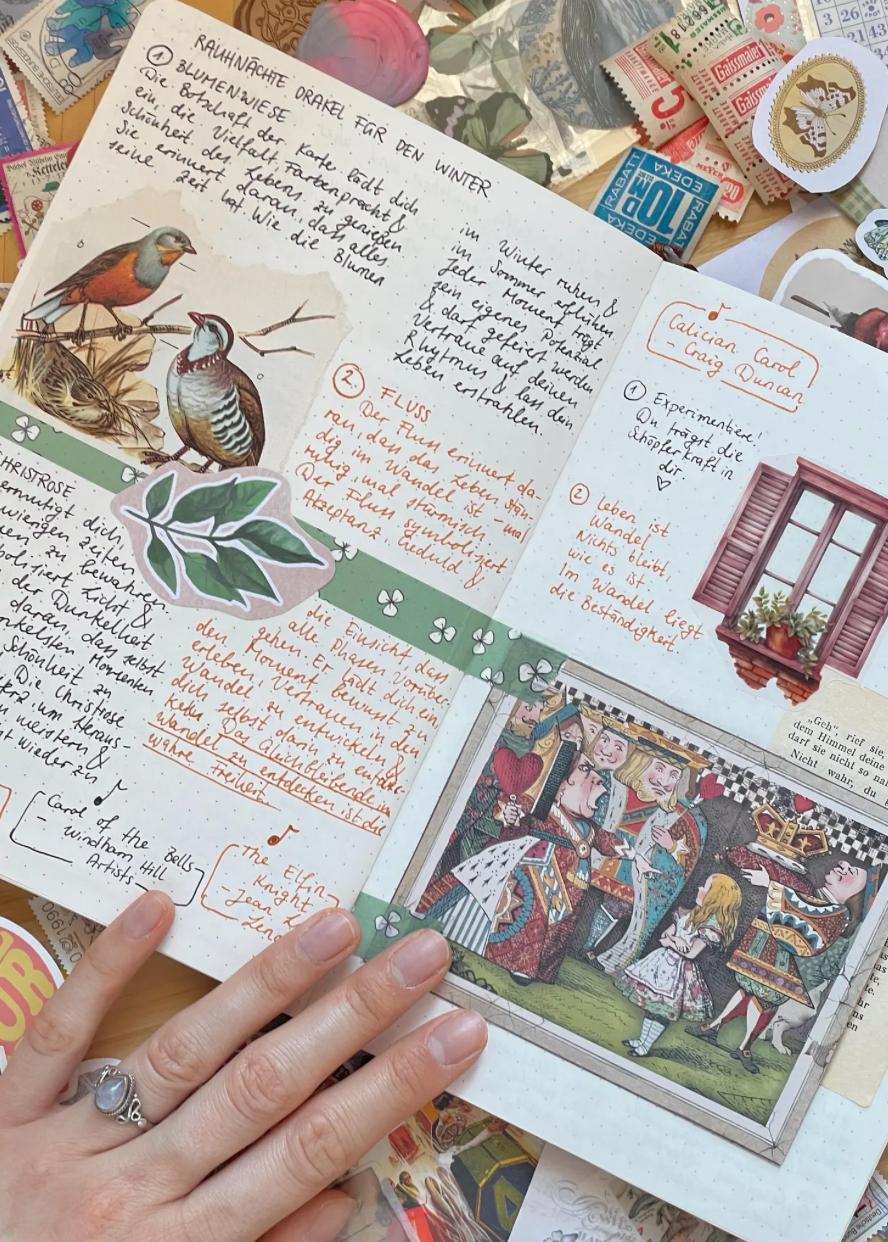 RAUHNÄCHTE ORAKEL FÜR DEN WINTER
① BLUMENWIESE
Die Botschaft der Karte lädt dich
ein, die Vielfalt, Farbenpracht &
Schönheit des Lebens zu genießen
Sie erinnert daran, dass alles
seine Zeit hat. Wie die Blumen
im Winter ruhen &
im Sommer erblühen
Jeder Moment trägt
sein eigenes Potenzial
& darf gefeiert werden
Vertraue auf deinen
Rhytmus & lass dein
Leben erstrahlen.
2. FLUSS
Der Fluss erinnert da-
ran, dass das Leben stän-
dig im Wandel ist - mal
ruhig, mal stürmisch.
Der Fluss symbolisiert
Akzeptanz, Geduld &
die Einsicht, dass
alle Phasen vorüber-
gehen. Er lädt dich ein
den Moment bewusst zu
erleben, Vertrauen in den
Wandel zu entwickeln &
dich selbst darin zu entwic-
keln. Das Gleichbleibende im
Wandel zu entdecken ist die
wahre Freiheit.
CHRISTROSE
ermutigt dich,
wierigen Zeiten
en zu bewahren
bolisiert Licht &
der Dunkelheit
daran, dass selbst
nkelsten Momenten
Schönheit zu
Die Christrose
erz um Heraus-
meistern &
t wieder zu
Carol of the Bells
- Windham Hill
Artists
The Elfin
Knight
- Jean
Calician Carol
- Craig Duncan
① Experimentiere!
Du trägst die
Schöpferkraft in
dir
② Leben ist
Wandel
Nichts bleibt,
wie es ist
Im Wandel liegt
die Beständigkeit
„Geh", rief sie,
dem Himmel deine
darf sie nicht so na
Nicht wahr, du
Gaissmaier
Gaissmaier
RABATT
EDEKA
10